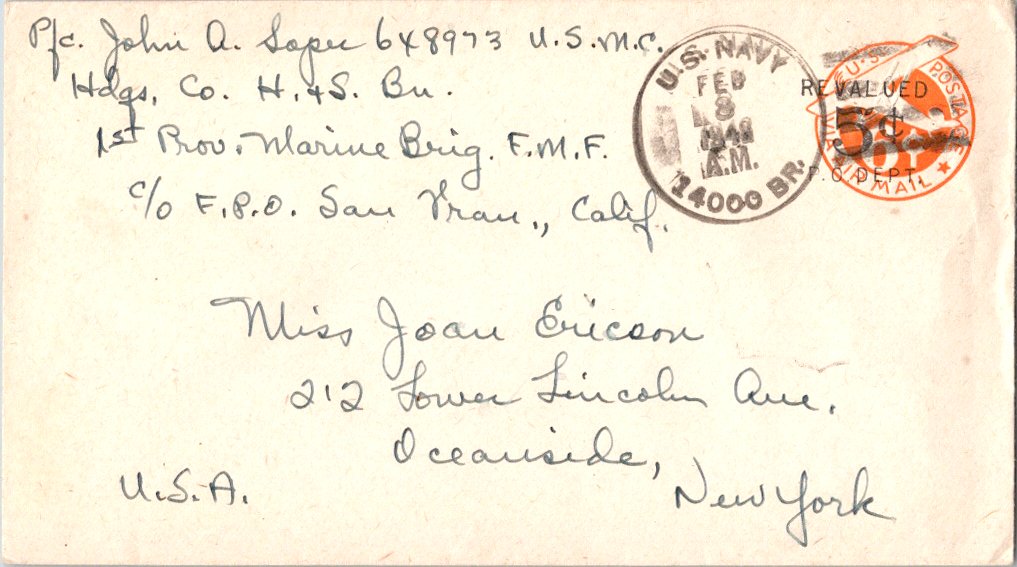 Pfc. John A. Soper 648973 U.S.M.C.
Hdqs. Co. H.+S. Bn.
1st Prov. Marine Brig. F.M.F.
c/o F.P.O. San Fran., Calif.
U.S. NAVY
FEB
3
A.M.
14000 BR.
U.S. POSTAGE
REVALUED
5¢
P.O. DEPT.
VIA AIR MAIL
Miss Joan Ericson
212 Lower Lincoln Ave.
Oceanside,
New York
U.S.A.